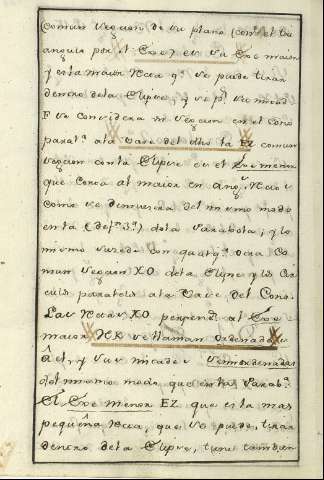 comun seccion de su plano con el tri
angulo por el Exe) es su Exe maior
y esta maior Recta q.e se puede tirar
dentro dela Elipse; y si p.r su mitad
F se considera una seccion en el Cono
paral.a ala vase del dho la EZ comun
seccion con la Elipse es el Exe menor
que corta al maior en ang.s Rectos
como se demuestra del mismo modo
en la (def.n 3.a) dela Parabola; y lo
mismo sucede con qualq.a otra co
mun seccion XO dela Elipse y los cir
culos paralelos ala vase del Cono.
Las Rectas XO perpend.s al Exe
maior HK se llaman ordenadas
à el, y sus mitades semiordenadas
del mismo modo que en las Parab.s
El Exe menor EZ que es la mas
pequeña Recta, que se puede tirar
dentro dela Elipse, tiene tambien